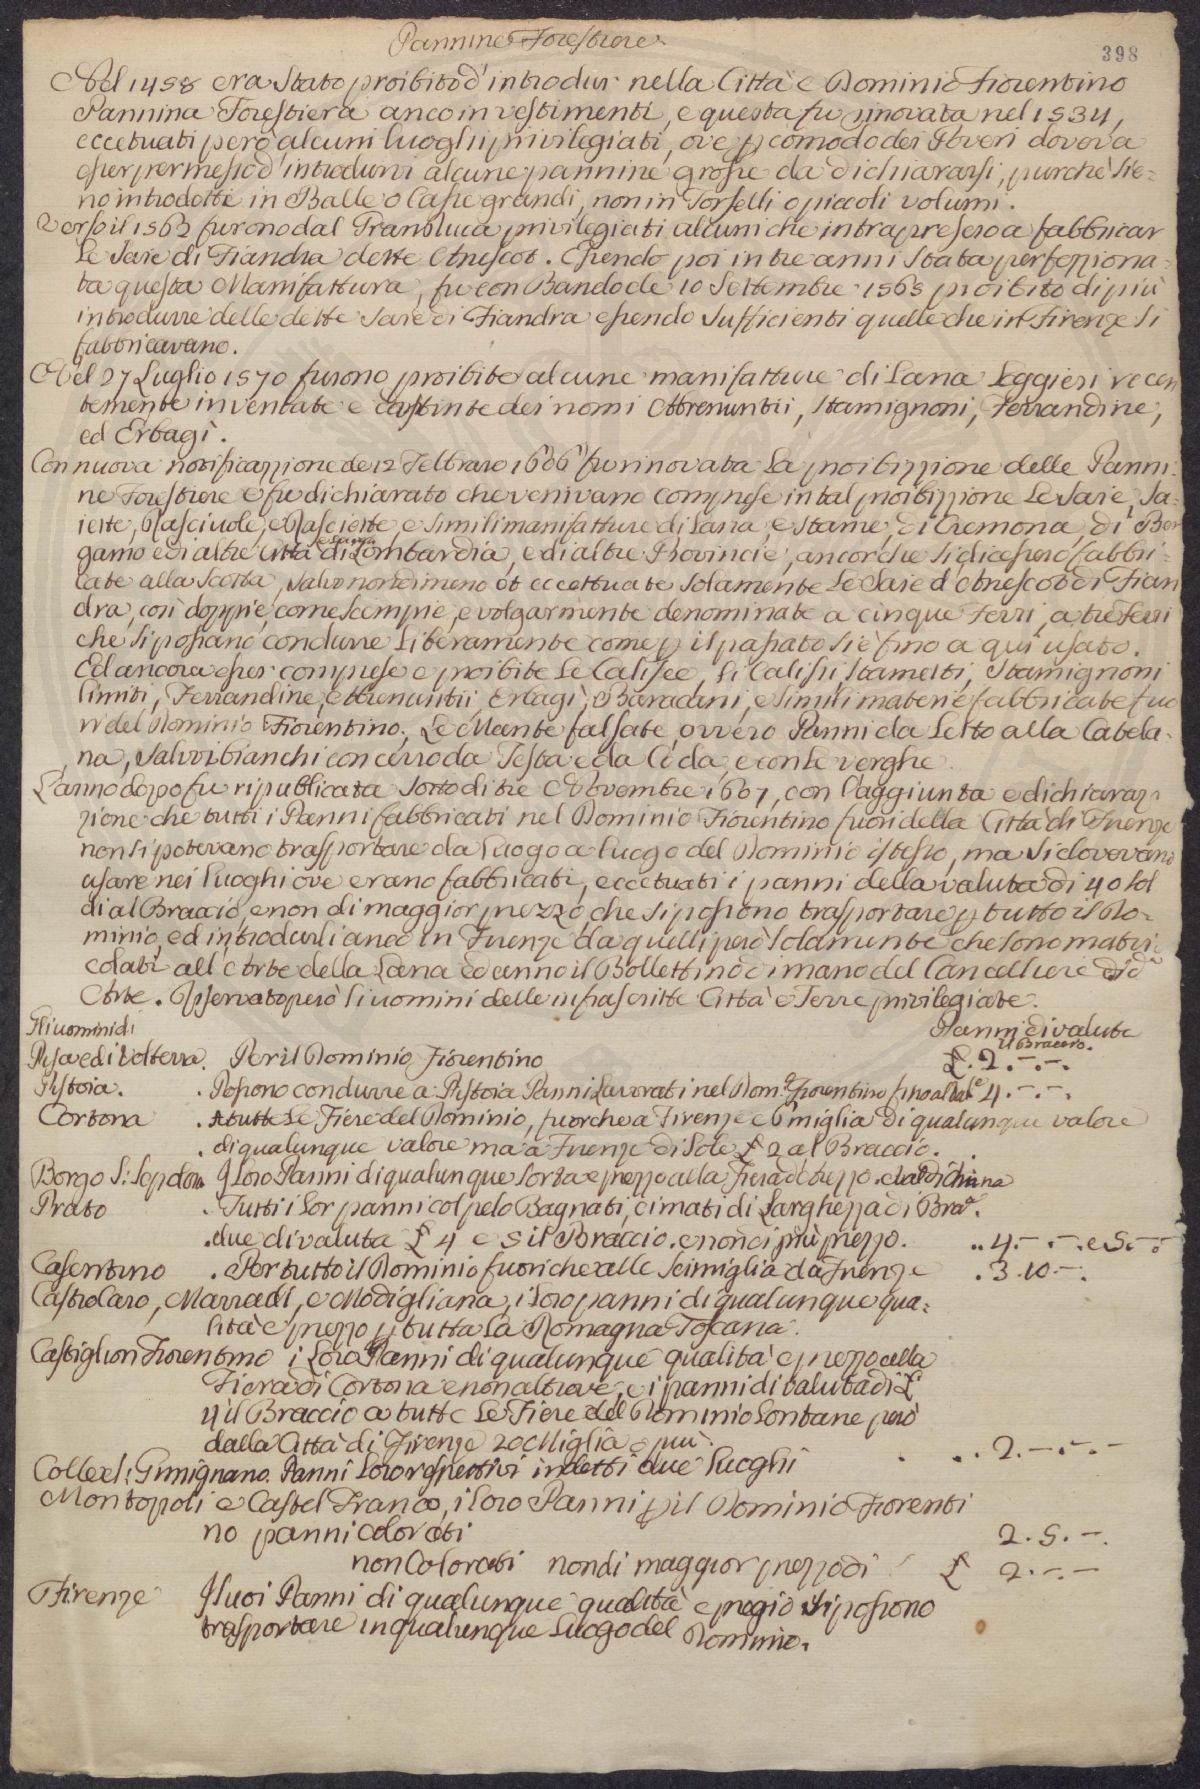 Pannine Forestiere
398
Nel 1458 era stato proibito d'introdur nella Città e Dominio Fiorentino
Pannina Forestiera anco in vestimenti, e questa fu innovata nel 1534,
eccettuati però alcuni luoghi privilegiati, ove p comodo dei Poveri doveva
esser permesso d'introdurvi alcune pannine grosse da dichiararsi, purchè sie=
no introdotte in Balle o Casse grandi, non in Torselli o piccoli volumi.
Verso il 1562 furono dal Granduca privilegiati alcuni che intrapresero a fabbricar
le Saie di Fiandra dette Ctnescot. Essendo poi in tre anni stata perfeziona=
ta questa Manifattura, fu con Bando de 10 Settembre 1565 proibito di più
introdurre delle dette Saie di Fiandra essendo sufficienti quelle che in Firenze si
fabbricavano.
Nel 27 Luglio 1570 furono proibite alcune manifatture di Lana leggieri recen
temente inventate e distinte dei nomi Ebrenuntii, Stamignoni, Ferrandine,
ed Erbagi.
Con nuova notificazzione de 12 Febbraro 1606 fu rinovata la proibizzione delle Panni=
ne Forestiere e fu dichiarato che venivano comprese in tal proibizzione le Saie, Sa=
iette, Rasciuole, e Rasciette, e simili manifatture di Lana, e stame, di Cremona, di Ber
gamo e di altre Città di Lombardia, e di altre Provincie, ancorche si dicessero fabbri=
cate alla Scotta, salvo nondimeno et eccettuate solamente le Saie d'Ctnescot di Fian
dra, così doppie, come scempie, e volgarmente denominate a cinque ferri, a tre ferri
che si possano condurre liberamente come p il passato si è fino a qui usato.
Ed ancora esser comprese e proibite le Calisee, li Calissi stametti, Stamignoni
limiti, Ferrandine, Ebrenuntii, Erbagi, Baracani, e simili materie fabbricate fuo
ri del Dominio Fiorentino, Le Mante falsate, ovvero Panni da Letto alla Catela=
na, salvo i bianchi con cerro da Testa e da Coda, e con le verghe.
L'anno dopo fu ripubblicata sotto di tre Novembre 1607, con l'aggiunta e dichiaraz=
zione che tutti i Panni fabbricati nel Dominio Fiorentino fuori della Città di Firenze
non si potevano trasportare da luogo a luogo del Dominio istesso, ma si dovevano
usare nei luoghi ove erano fabbricati, eccettuati i panni della valuta di 40 sol
di al Braccio, e non di maggior prezzo che si possono trasportare p tutto il Do=
minio, ed introdurli anco in Firenze da quelli però solamente che sono matri=
colati all'Arte della Lana ed anno il Bollettino di mano del Cancelliere di da
Arte. Osservato però li uomini delle infrascritte Città e Terre privilegiate.
Gli uomini di Panni di valuta
il Braccio.
Pisa e di Volterra. Per il Dominio Fiorentino £. 2.-.-.
Pistoia. . Possono condurre a Pistoia Panni lavorati nel Dom.o Fiorentino fino al val.e 4.-.-.
Cortona . A tutte le Fiere del Dominio, fuorche a Firenze e 6 miglia di qualunque valore
. di qualunque valore ma a Firenze di sole £ 2 al Braccio.
Borgo S: Sepolcro I Loro Panni di qualunque sorta e prezzo alla Fiera d'Arezzo. e Val di Chiana
Prato . Tutti i lor panni col pelo Bagnati, cimati di Larghezza di Bra.
. due di valuta £ 4 e 5 il Braccio. e non di più prezzo. .. 4.-.-. e 5.-.
Casentino . Per tutto il Dominio fuoriche alle sei miglia da Firenze . 3.10.-.
Castrocaro, Marradi, e Modigliana, i loro panni di qualunque qua=
lità e prezzo p tutta la Romagna Toscana.
Castiglion Fiorentino i Loro Panni di qualunque qualità e prezzo alla
Fiera di Cortona e non altrove, e i panni di valuta di £
4 il Braccio a tutte le Fiere del Dominio lontane però
dalla Città di Firenze 20 Miglia e più.
Colle e S: Gimignano. Panni loro respettivi in detti due luoghi . .. 2.-.-.-
Montopoli e Castel Franco, i loro Panni p il Dominio Fiorenti
no panni colorati 2.5.-
non Colorati non di maggior prezzo di £ 2.-.-
Firenze I suoi Panni di qualunque qualità e pregio si possono
trasportare in qualunque Luogo del Dominio.